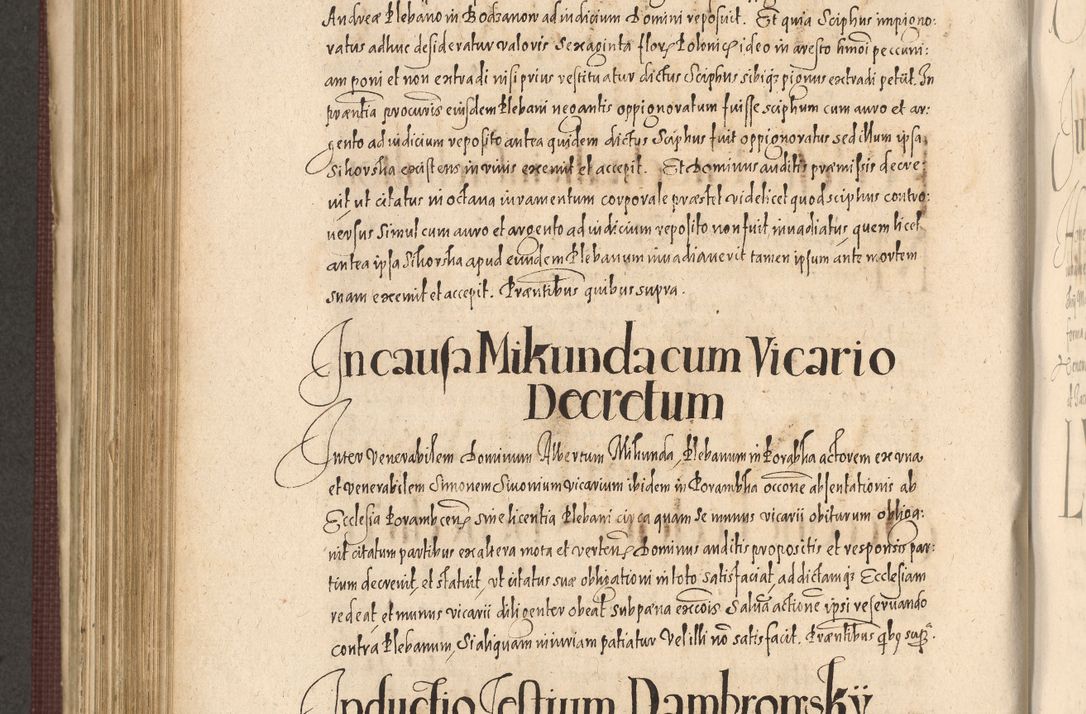 Andreæ Plebano in Bodzanow ad iudicium Domini reposuit. Et quia Sciphus impiono:
ratus adhuc desideratur valoris Sexaginta flor: Polonic: ideo in aresto hmōi peccuni:
am poni et non extradi nisi prius restituatur dictus Sciphus sibiq; pionus extradi petiit. In
præntia procuris eiusdem Plebani negantis oppignoratum fuisse sciphum cum auro et ar:
gento ad iudicium reposito antea quidem dictus Sciphus fuit oppignoratus sed illum ipsa
Sikorska existens in vivis exemit et accepit. Et Dominus auditis præmissis decre:
vit, ut citatus in octava iuramentum corporale præstet videlicet quod sciphus contro:
versus Simul cum auro et argento ad iudicium reposito non fuit invadiatus, quem licet
antea ipsa Sikorska apud eundem Plebanum invadiaverit tamen ipsum ante mortem
suam exemit et accepit. Præntibus quibus supra.
In causa Mikunda cum Vicario
Decretum
Inter Venerabilem Dominum Albertum Mikunda, Plebanum in Porabka actorem ex una
et venerabilem Simonem Suonium vicarium ibidem in Porambka occōne absentationis ab
Ecclesia Porambcen: sine licentia Plebani circa quam se munus vicarii obiturum obliga:
vit citatum partibus ex altera mota et verten: Dominus auditis propositis et responsis par:
tium decrevit, et statuit, ut citatus suæ obligationi in toto satisfaciat, ad dictamq; Ecclesiam
redeat, et munus vicarii diligenter obeat sub pæna excōis Salva actione ipsi reservando
contra Plebanum, Si aliquam iniuriam patiatur Vel illi nō satisfacit. Præntibus qbq supra.
Inductio Testium Dambrowskÿ